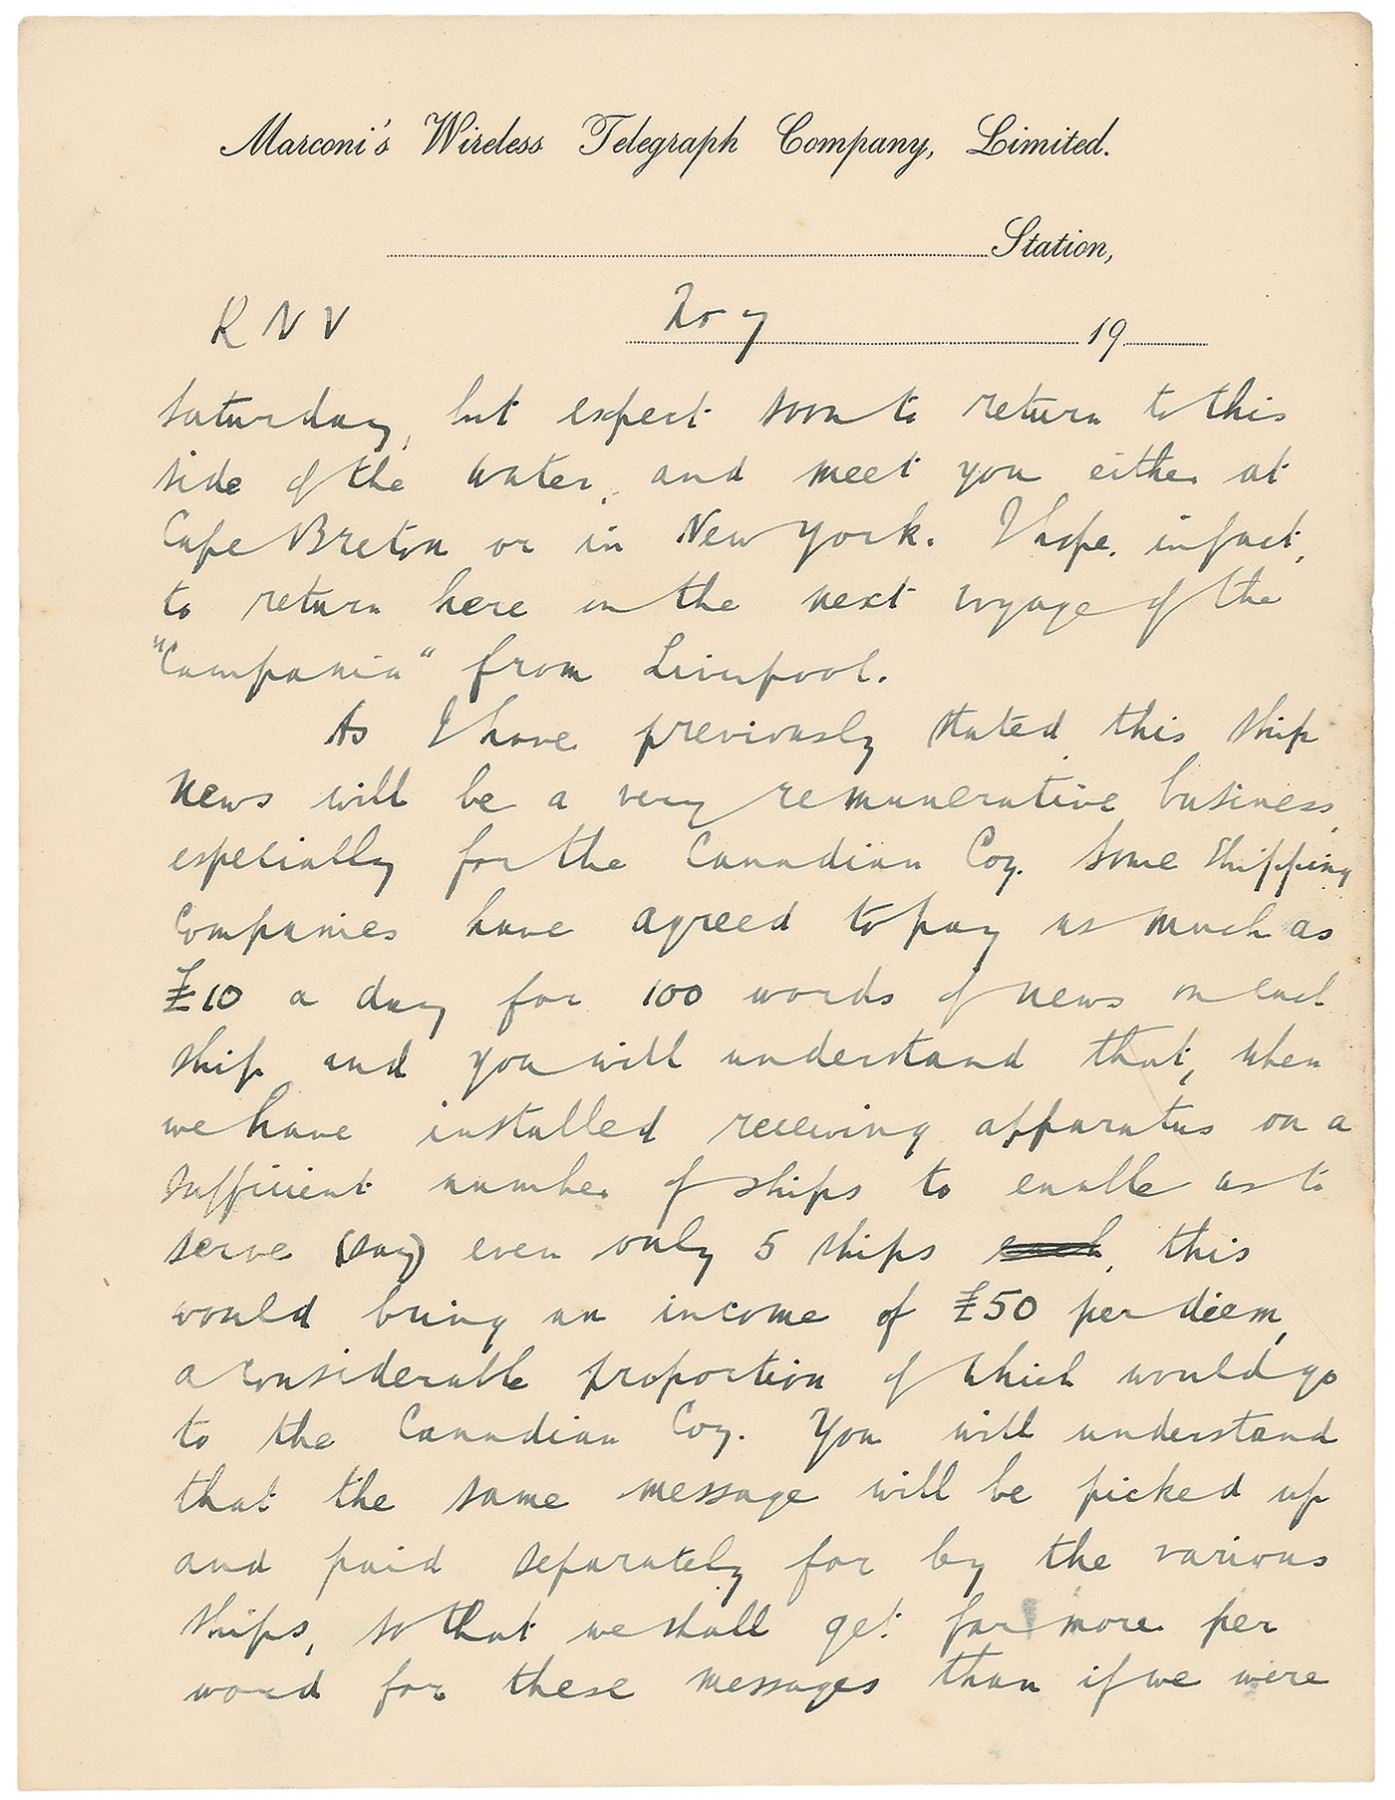 Marconi's Wireless Telegraph Company, Limited.
Station,
R N V
No 7 19
Saturday, but expect soon to return to this
side of the water, and meet you either at
Cape Breton or in New York. I hope, in fact,
to return here on the next voyage of the
"Campania" from Liverpool.
As I have previously stated, this ship
news will be a very remunerative business,
especially for the Canadian Coy. Some Shipping
Companies have agreed to pay as much as
£10 a day for 100 words of news on each
ship and you will understand that, when
we have installed receiving apparatus on a
sufficient number of ships to enable us to
serve (say) even only 5 ships each, this
would bring an income of £50 per diem,
a considerable proportion of which would go
to the Canadian Coy. You will understand
that the same message will be picked up
and paid separately for by the various
ships, so that we shall get far more per
word for these messages than if we were